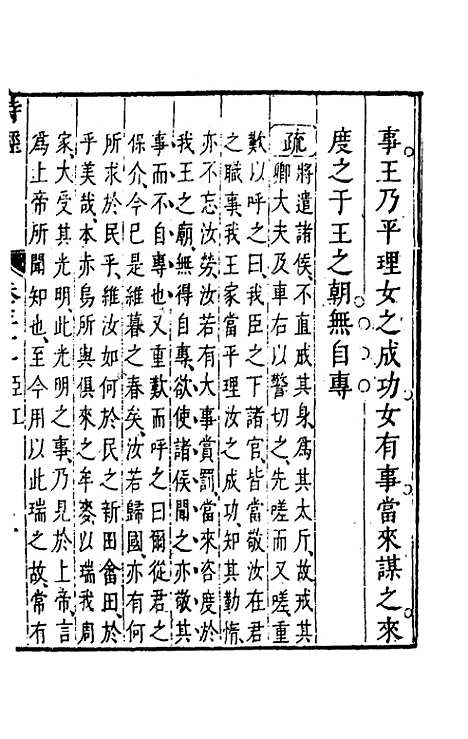 事王乃平理女之成功女有事當來謀之來
度之于王之朝無自專
疏將遣諸侯不直戒其身爲其太斥故戒其
卿大夫及車右以警切之先嗟而又嗟重
歎以呼之曰我臣之下諸官皆當敬汝在君
之職事我王家當平理汝之成功知其勤惰
亦不忘汝勞汝若有大事賞罰當來咨度於
我王之廟無得自專欲使諸侯聞之亦敬其
事而不自專也又重歎而呼之曰爾從君之
保介今已是維暮之春矣汝若歸國亦有何
所求於民乎維汝如何於民之新田畲田於
乎美哉本赤烏所與俱來之牟麥以瑞我周
家大受其光明此光明之事乃見於上帝言
爲上帝所聞知也至今用以此瑞之故常有
詩經